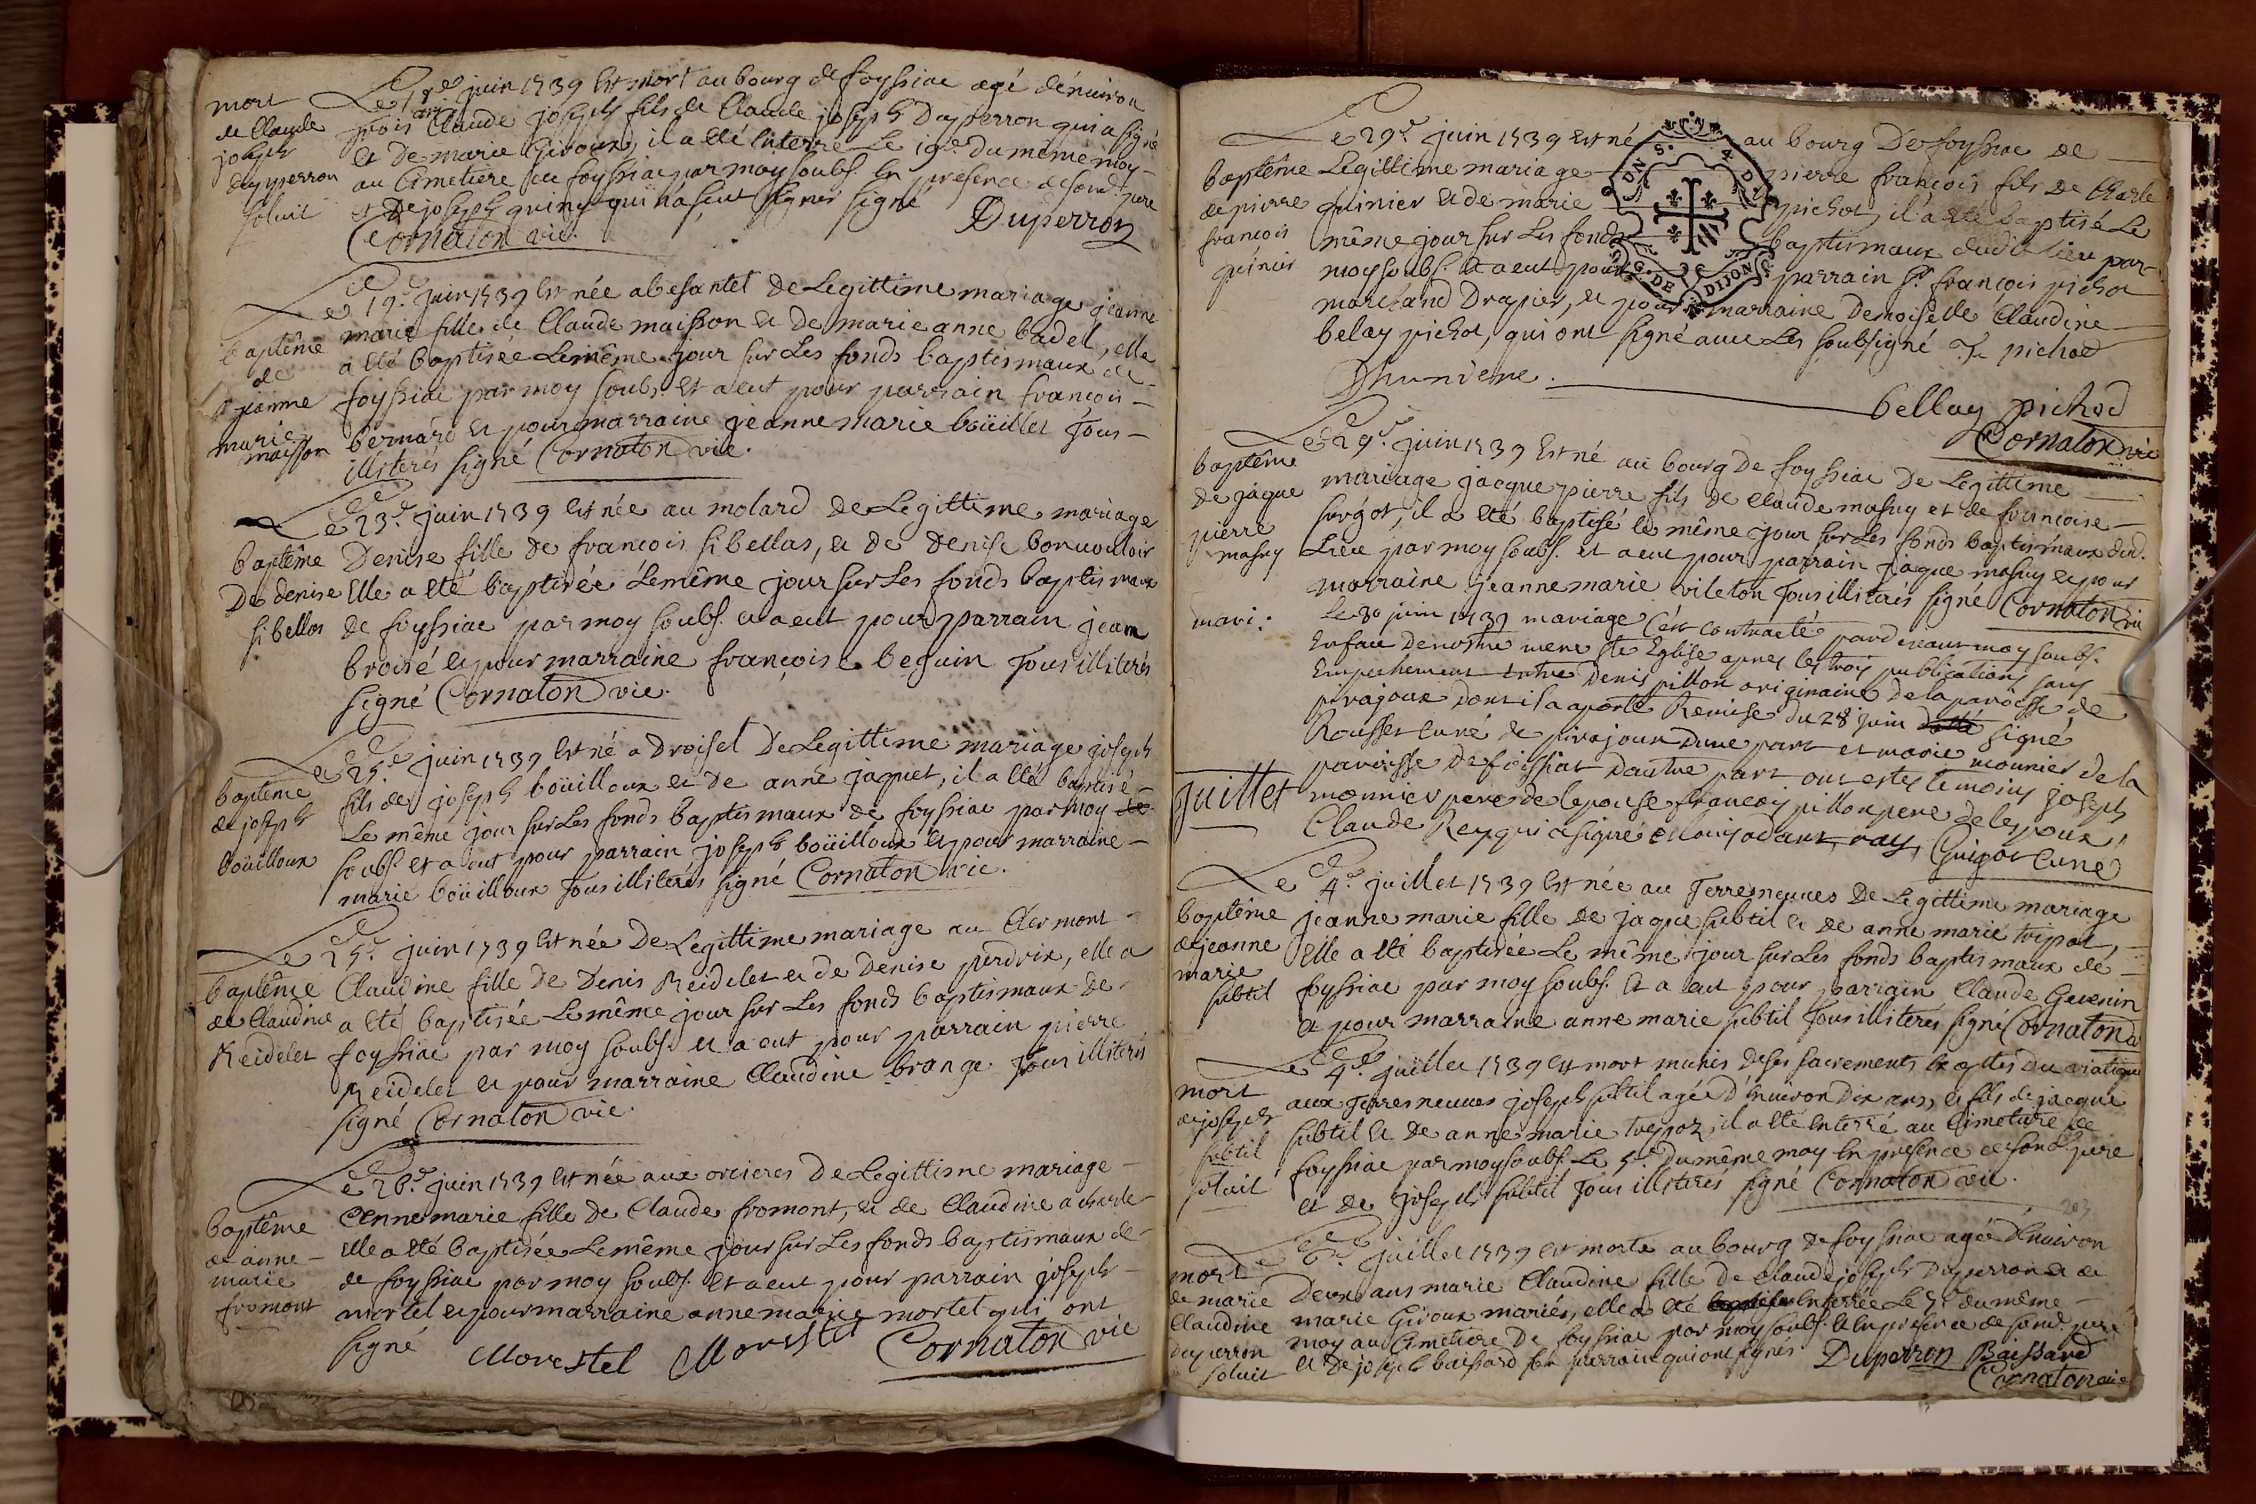 mort
de Claude
joseph
duyperron
soluit
Le 18e juin 1739 est mort au bourg de foyssiac agé dénuiron
trois ans Claude joseph fils de Claude joseph Duyperron qui a signé
et de marie Giroux, il a été enterré Le 19e du même moy
au Cimetiere de foyssiac par moy soubs. en presence de sond. pere
et de joseph quiny qui n'a sceut signer signé Duperron
Cornaton vic.
baptême
de
jeanne
marie
maisson
Le 19e juin 1739 est née a besantet de Legittime mariage jeanne
marie fille de Claude maisson et de marie anne badel, elle
a été baptisée Le même jour sur Les fonds baptismaux de
foyssiac par moy soubs. et a eut pour parrain francois
bernard et pour marraine jeanne marie boüillet Tous
illiterés signé Cornaton vic.
baptême
De denise
sibellas
Le 23e juin 1739 est née au molard de Legittime mariage
Denise fille de francois sibellas, et de Denise bonuouloir
Elle a eté baptisée Le même jour sur Les fonds baptismaux
de foyssiac par moy soubs. et a eut pour parrain jean
broisé et pour marraine françoise beguin Tous illiterés
signé Cornaton vic.
baptême
de joseph
boüilloux
Le 25e juin 1739 est né a Droisel De Legittime mariage joseph
fils de joseph boüilloux et de anne jaquet, il a été baptisé
Le même jour sur Les fonds baptismaux de foyssiac par moy
soubs. et a eut pour parrain joseph boüilloux et pour marraine
marie boüilloux Tous illiterés signé Cornaton vic.
baptême
de Claudine
Reidelet
Le 25e juin 1739 est née De Legittime mariage au Clermont
Claudine fille de Denis Reidelet et de Denise perdrix, elle a
a été baptisée Le même jour sur Les fonds baptismaux de
foyssiac par moy soubs. et a eut pour parrain pierre
Reidelet et pour marraine Claudine brange Tous illiterés
signé Cornaton vic.
baptême
de anne
marie
fromont
Le 26e juin 1739 est née aux orcieres De Legittime mariage
Anne marie fille de Claude fromont, et de Claudine
Elle a été baptisée Le même jour sur Les fonds baptismaux de
de foyssiac par moy soubs. et a eut pour parrain joseph
mortel et pour marraine anne marie mortet qui ont
signé Morestel Morestel Cornaton vic
baptême
de pierre
francois
quinier
Le 29e juin 1739 est né au bourg De foyssiac de
Legittime mariage pierre francois fils de Charle
quinier et de marie pichot, il a été baptisé Le
même jour sur Les fonds baptismaux dudit Lieu par
moy soubs. et a eut pour parrain Sr. francois pichot
marchand Drapier, et pour marraine Demoiselle Claudine
belay pichot, qui ont signé auec Les soubsigné
bellay pichod
Cornaton vic
G. DE DIJON
baptême
de jaque
pierre
masuy
Le 29e juin 1739 est né au bourg de foyssiac De Legittime
mariage jacque pierre fils de Claude masuy et de francoise
surgot, il a été baptisé le même jour sur Les fonds baptismaux dud.
Lieu par moy soubs. et a eut pour parrain jaque masuy et pour
marraine jeanne marie vileton Tous illiterés signé Cornaton vic
mari:
Le 30 juin 1739 mariage s'est contracté pard deuant moy soubs.
En face de nostre mere Ste Eglise apres les trois publications sans
Empechement entre Denis pillon originaire de la paroisse de
pirajoux dont il a aporté Remise du 28 juin signé
Rousset curé de pirajoux dune part et marie mounier de la
paroisse de foissiat dautre part ont estes temoins joseph
monnier pere de lepouse francois pillon pere de lepoux,
Claude Rey qui a signé Guigot curé
juillet
baptême
de jeanne
marie
subtil
Le 4e juillet 1739 est née au Terres neuues De Legittime mariage
jeanne marie fille de jaque subtil et de anne marie trepot,
Elle a été baptisée Le même jour sur Les fonds baptismaux de
foyssiac par moy soubs. et a eut pour parrain Claude Guenin
et pour marraine anne marie subtil Tous illiterés signé Cornaton
mort
de joseph
subtil
soluit
Le 4e juillet 1739 est mort munis de ses sacrements excepté du viatique
aux Terres neuues joseph subtil agé d'énuiron Dix ans, et fils de jacque
subtil et de anne marie trepoz, il a été enterré au Cimetiere de
foyssiac par moy soubs. Le 5e du même moy en presence de sond. pere
et de joseph subtil Tous illiterés signé Cornaton vic.
203
mort
de marie
Claudine
duperron
soluit
Le 6e juillet 1739 est morte au bourg de foyssiac agée d'énuiron
Deux ans marie Claudine fille de Claude joseph Duyperron et de
marie Giroux mariés, elle a été enterrée Le 7e du même
moy au Cimetiere De foyssiac par moy soubs. et en presence de sond. pere
et de joseph baissard son parrain qui ont signés Duperron Baissard
Cornaton vic